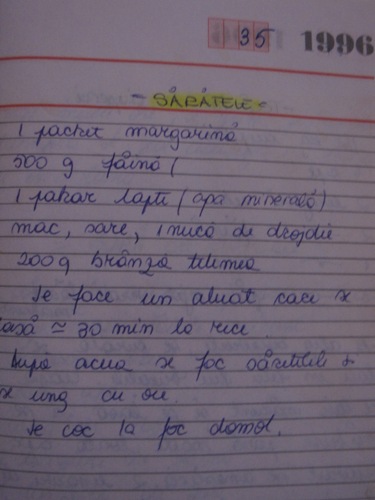 35 1996
- SĂRĂȚELE -
1 pachet margarină
500 g făină (
1 pahar lapte (apa minerală)
mac, sare, 1 nucă de drojdie
200 g brânză telemea
Se face un aluat care se
lasă ≃ 30 min la rece.
După aceea se fac sărățelele +
se ung cu ou.
Se coc la foc domol.